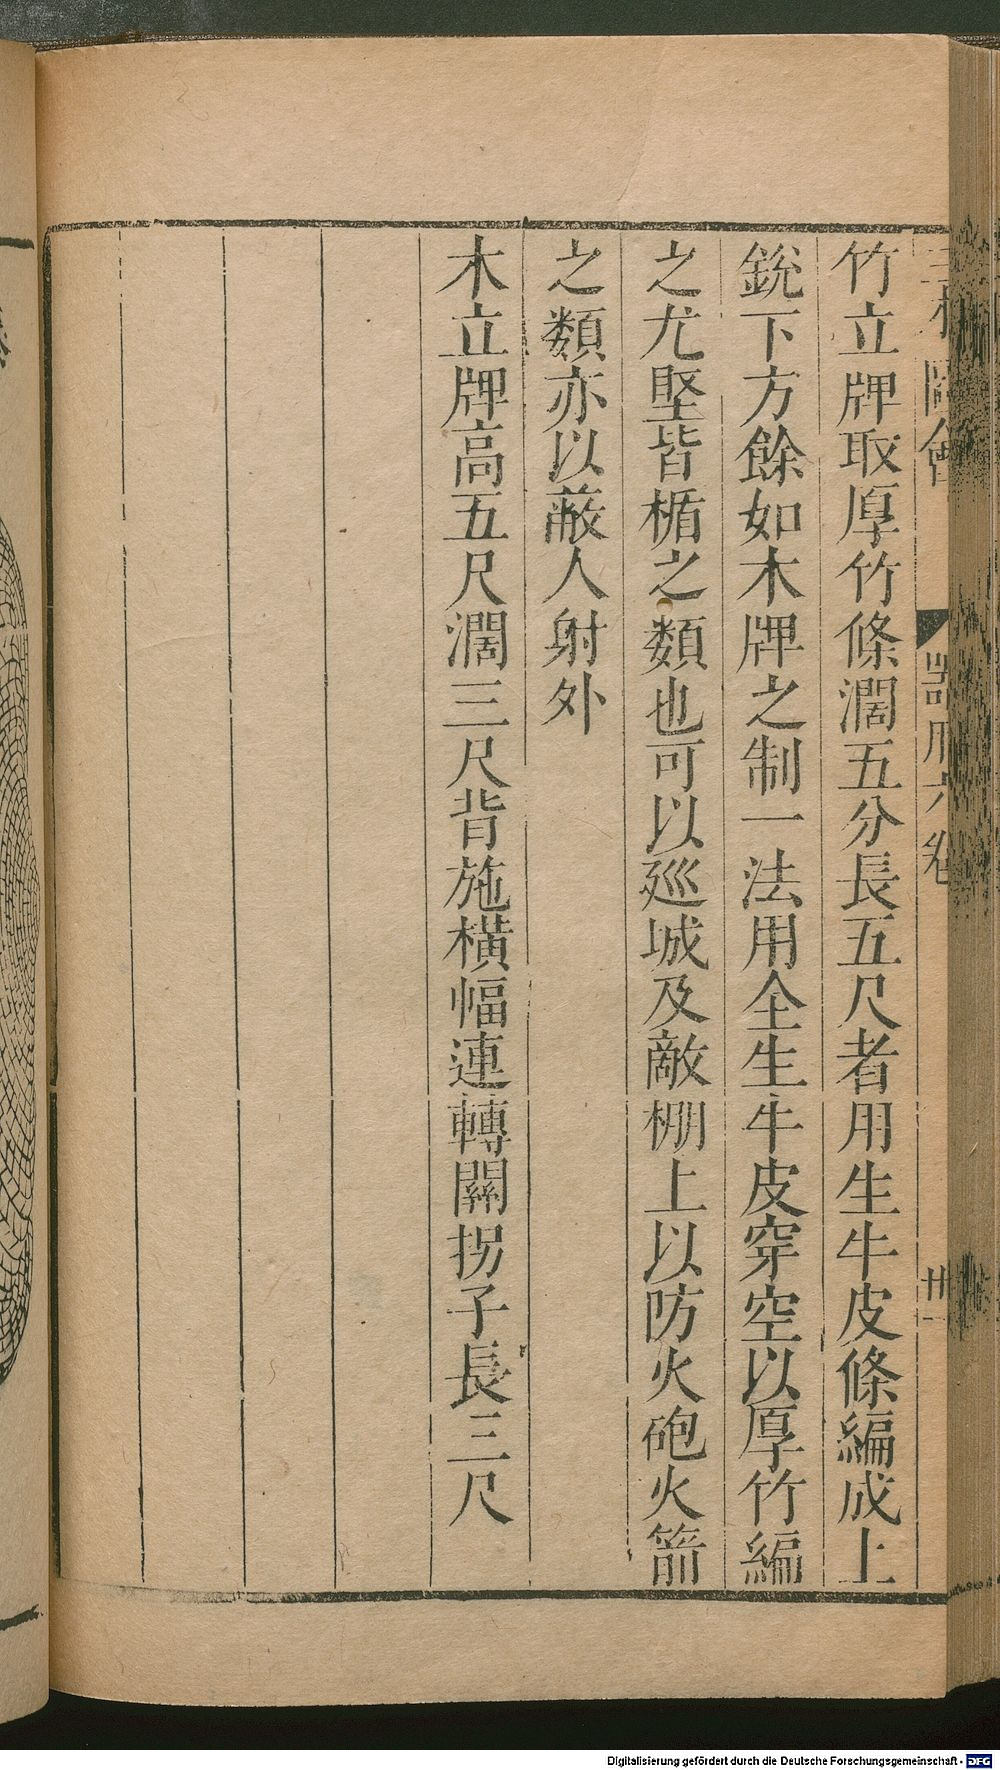 三才圖會
器用六卷
廿一
竹立牌取厚竹條濶五分長五尺者用生牛皮條編成上
銳下方餘如木牌之制一法用全生牛皮穿空以厚竹編
之尤堅皆楯之類也可以廵城及敵棚上以防火砲火箭
之類亦以蔽人射外
木立牌高五尺濶三尺背施橫幅連轉關拐子長三尺
Digitalisierung gefördert durch die Deutsche Forschungsgemeinschaft - DFG